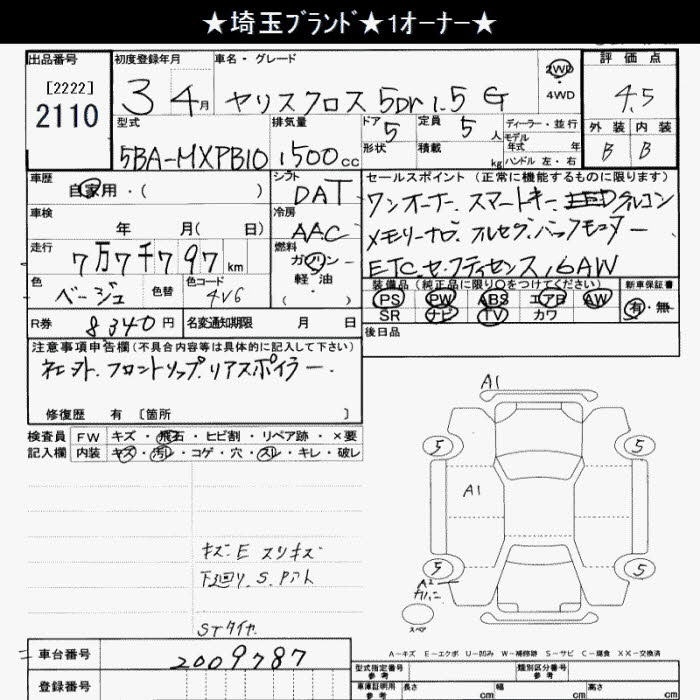 ★埼玉ﾌﾞﾗﾝﾄﾞ★1オーナー★
出品番号
[2222]
2110
初度登録年月
3 4月
車名・グレード
ヤリスクロス 5Dr 1.5 G
2WD
4WD
評価点
4.5
外装 内装
B B
型式
5BA-MXPB10
排気量
1500cc
ドア 5
形状
定員 5人
積載 kg
ディーラー・並行
モデル
年式 年
ハンドル 左・右
車歴
自家用・( )
車検
年 月( 日)
走行
7万7千797km
色
ベージュ
色替
色コード
4V6
シフト
DAT
冷房
AAC
燃料
ガソリン
軽油
セールスポイント(正常に機能するものに限ります)
ワンオーナー.スマートキー.
メモリーナビ.フルセグ.バックモニター
ETC.セーフティセンス,16AW
装備品(純正品に限り○をつけてください)
PS PW ABS エアB AW
SR ナビ TV カワ
新車保証書
有・無
R券 8340円
名変通知期限 月 日
後日品
注意事項申告欄(不具合内容等は具体的に記入して下さい)
社外.フロントリップ.リアスポイラー.
修復歴 有 〔箇所 〕
検査員
記入欄
FW キズ・飛石・ヒビ割・リペア跡・×要
内装 キズ・汚れ・コゲ・穴・スレ・キレ・破レ
キズ E スリキズ
下廻り.S.
STタイヤ
A1
5 5
A1
5 5
A2
スペア
A-キズ E-エクボ U-凹み W-補修跡 S-サビ C-腐食 XX-交換済
車台番号
2009787
登録番号
型式指定番号
参考
類別区分番号
参考
車庫証明用
参考
長さ cm
幅 cm
高さ cm